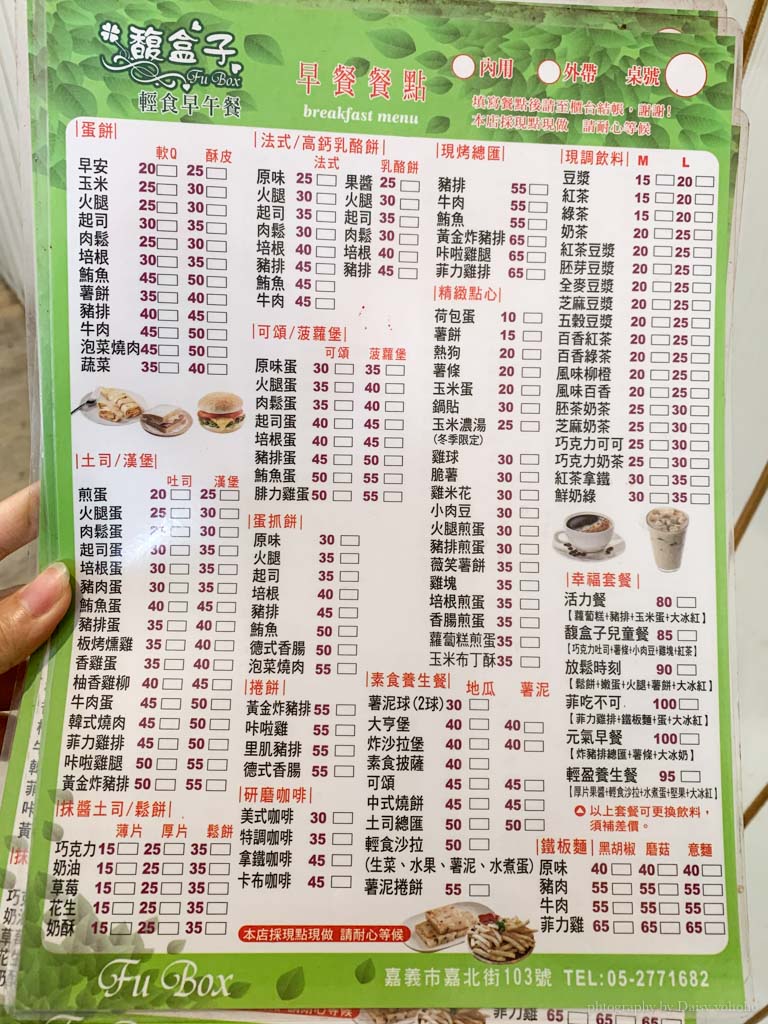 馥盒子
Fu Box
輕食早午餐
早餐餐點
breakfast menu
內用 外帶 桌號
填寫餐點後請至櫃台結帳，謝謝！
本店採現點現做 請耐心等候
|蛋餅|
軟Q 酥皮
早安 20 25
玉米 25 30
火腿 25 30
起司 30 35
肉鬆 25 30
培根 30 35
鮪魚 45 50
薯餅 35 40
豬排 40 45
牛肉 45 50
泡菜燒肉 45 50
蔬菜 35 40
|土司/漢堡|
吐司 漢堡
煎蛋 20 25
火腿蛋 25 30
肉鬆蛋 30
起司蛋 30 35
培根蛋 30 35
豬肉蛋 30 35
鮪魚蛋 40 45
豬排蛋 35 40
板烤燻雞 35 40
香雞蛋 35 40
柚香雞柳 40 45
牛肉蛋 45 50
韓式燒肉 45 50
菲力雞排 45 50
咔啦雞腿 50 55
黃金炸豬排 50 55
|抹醬土司/鬆餅|
薄片 厚片 鬆餅
巧克力 15 25 35
奶油 15 25 35
草莓 15 25 35
花生 15 25 35
奶酥 15 25 35
|法式/高鈣乳酪餅|
法式 乳酪餅
原味 25 果醬 25
火腿 30 火腿 30
起司 35 起司 35
肉鬆 30 肉鬆 30
培根 40 培根 40
豬排 45 豬排 45
鮪魚 45
牛肉 45
|可頌/菠蘿堡|
可頌 菠蘿堡
原味蛋 30 35
火腿蛋 35 40
肉鬆蛋 35 40
起司蛋 40 45
培根蛋 40 45
豬排蛋 45 50
鮪魚蛋 50 55
腓力雞蛋 50 55
|蛋抓餅|
原味 30
火腿 35
起司 35
培根 40
豬排 45
鮪魚 50
德式香腸 50
泡菜燒肉 55
|捲餅|
黃金炸豬排 55
咔啦雞 55
里肌豬排 55
德式香腸 55
|研磨咖啡|
美式咖啡 30
特調咖啡 35
拿鐵咖啡 45
卡布咖啡 45
本店採現點現做 請耐心等候
|現烤總匯|
豬排 55
牛肉 55
鮪魚 55
黃金炸豬排 65
咔啦雞腿 65
菲力雞排 65
|精緻點心|
荷包蛋 10
薯餅 15
熱狗 20
薯條 20
玉米蛋 20
鍋貼 30
玉米濃湯 25
(冬季限定)
雞球 30
脆薯 30
雞米花 30
小肉豆 30
火腿煎蛋 30
豬排煎蛋 30
薇笑薯餅 35
雞塊 35
培根煎蛋 35
香腸煎蛋 35
蘿蔔糕煎蛋 35
玉米布丁酥 35
|素食養生餐|
地瓜 薯泥
薯泥球(2球) 30
大亨堡 40 40
炸沙拉堡 40 40
素食披薩 40
可頌 45 45
中式燒餅 45 45
土司總匯 50 50
輕食沙拉 50
(生菜、水果、薯泥、水煮蛋)
薯泥捲餅 55
|現調飲料| M L
豆漿 15 20
紅茶 15 20
綠茶 15 20
奶茶 20 25
紅茶豆漿 20 25
胚芽豆漿 20 25
全麥豆漿 20 25
芝麻豆漿 20 25
五穀豆漿 20 25
百香紅茶 20 25
百香綠茶 20 25
風味柳橙 20 25
風味百香 20 25
胚茶奶茶 25 30
芝麻奶茶 25 30
巧克力可可 25 30
巧克力奶茶 25 30
紅茶拿鐵 30 35
鮮奶綠 30 35
|幸福套餐|
活力餐 80
【蘿蔔糕+豬排+玉米蛋+大冰紅】
馥盒子兒童餐 85
【巧克力吐司+薯條+小肉豆+雞塊+紅茶】
放鬆時刻 90
【鬆餅+嫩蛋+火腿+薯餅+大冰紅】
菲吃不可 100
【菲力雞排+鐵板麵+蛋+大冰紅】
元氣早餐 100
【炸豬排總匯+薯條+大冰奶】
輕盈養生餐 95
【厚片果醬+輕食沙拉+水煮蛋+堅果+大冰紅】
以上套餐可更換飲料，
須補差價。
|鐵板麵| 黑胡椒 蘑菇 意麵
原味 40 40 40
豬肉 55 55 55
牛肉 55 55 55
菲力雞 65 65 65
Fu Box
嘉義市嘉北街103號 TEL:05-2771682
photography by Daisy yohoho
菲力雞 65 65 65